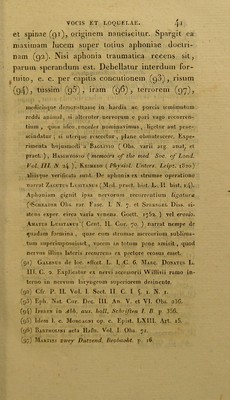 VOCIS ET LOQUELAE. 41
et spinae (91), originem nanciscitur. Spargit ea
maximam lucem super totius aphoniae doctri-
nam (92). Nisi aphonia traumatica recens sit,
parum sperandum est. Debellatur interdum for-
tuito, e. c. per capitis concutionem (93), risum
(94), tussim (95), iram (96), terrorem (97),
medicisque demonstrasse in hardis ac porcis semimutum
reddi animal, si alteruter nervorum e pari vago recurren-
tium, quos ideo vocales nominavimus, ligetur aut prae-
scindatur; si uterque resecetur, plane obmutescere. Expe-
rimenta hujusmodi a Baglivio (Obs. varii arg. anat. et
pract.), Haightonio (memoirs of the med Soc of Lond.
Vol. III. N 24), Kloekhof (Physiol. Unters. Leipz. 1800)
aliisque verificata sunt. De aphonia ex strumae operatione
narrat Zacutus Lusitanus (Med. pract. hist. L. II hist. 14).
Aphoniam gignit ipsa nervorum recurrentium ligatura
(Schrader Obs. rar. Fasc. I. N. 7. et Soumain Diss si-
stens exper. circa varia venena Goett. 1752.) vel erosio.
Amatus Lusitanus (Cent. II. Cur. 70) narrat nempe de
quadam femina, quae cum strumae nervorum sublima-
tum superimponisset, vocem in totum pene amisit, quod
nervus illius lateris recurrens ex parte erosus esset.
(91) Galenus de loc. affect. L. I, C. 6. Mang. Donatus L.
III. C. 2. Explicatur ex nervi accessorii Willisii ramo in-
terno in nervum laryngeum superiorem desinente.
(92) Cfr. P. II. Vol. I. Sect. II C. I. § 2. N. 1.
(93) Eph. Nat. Cur. Dec. III. An. V. et VI. Obs. 236.
(94) Iperen in Abh. aus. holl. Schriften I. B. p. 356.
(95) Idem l. c. Morgagni op. c. Epist. LXIII. Art. 15.
(96) Bartholini acta Hafn. Vol. I. Obs. 71.
(97) Martini zwey Darstend. Beobacht. p. 18.